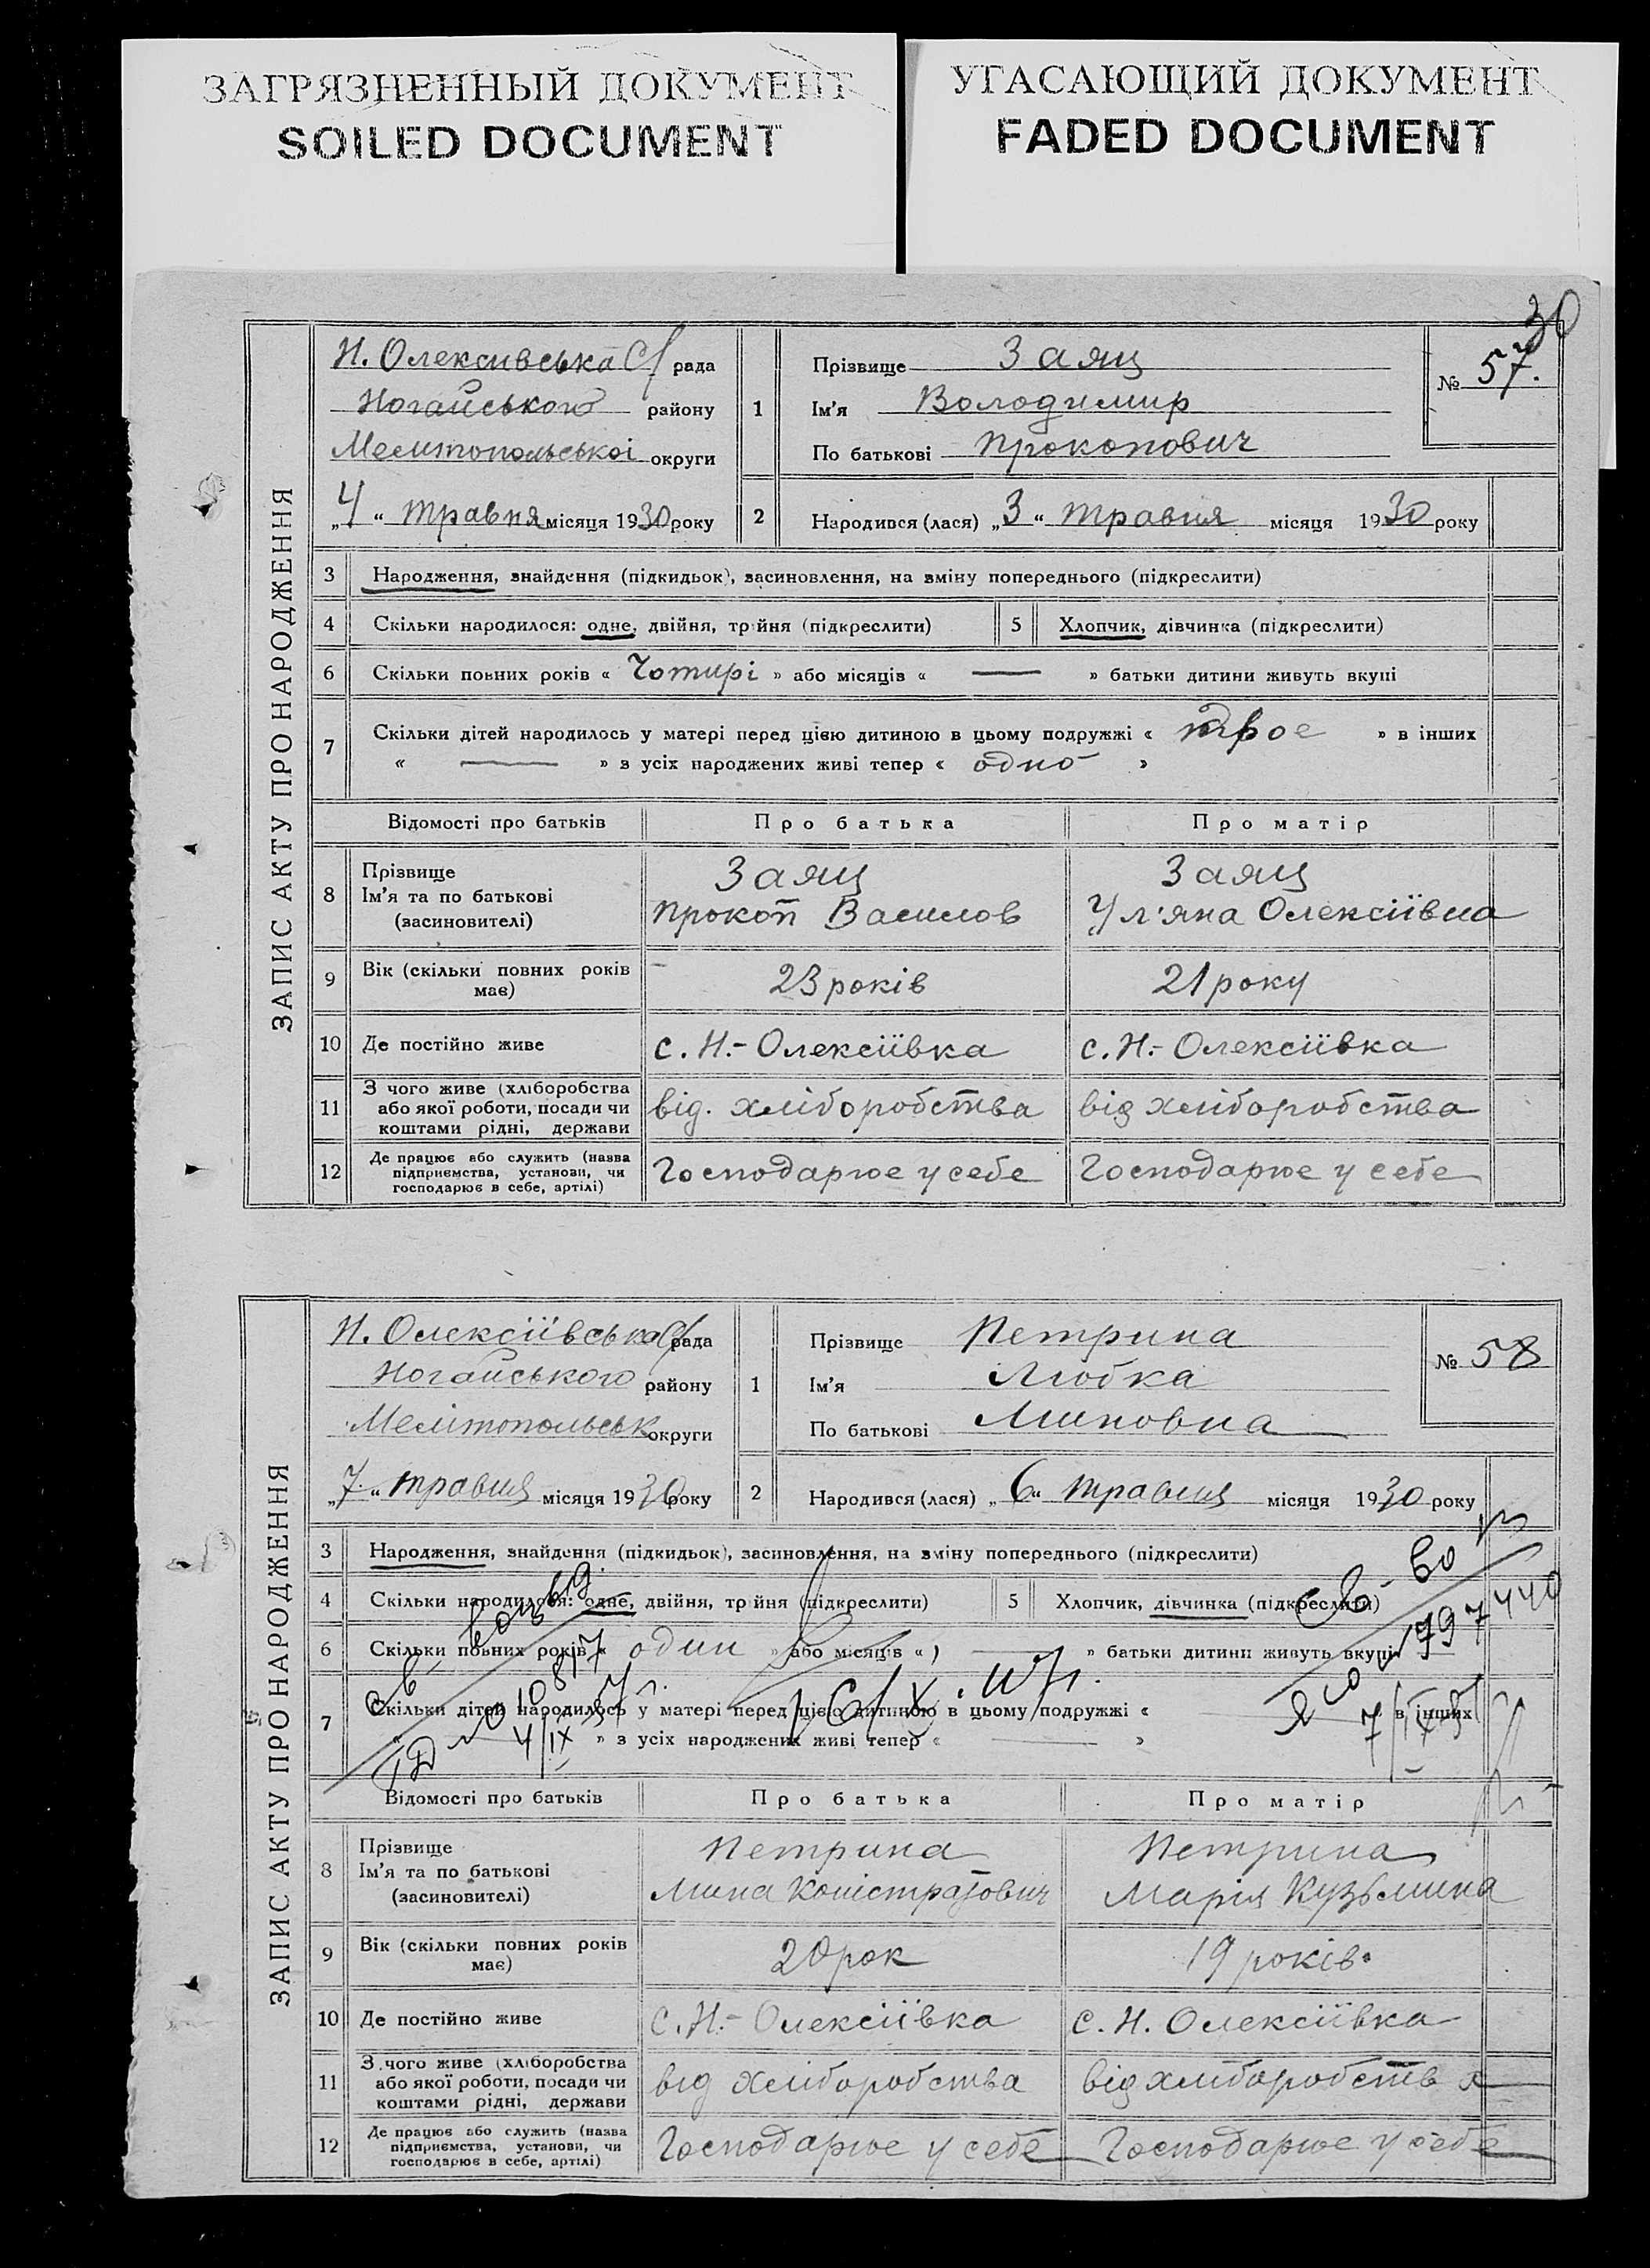 ЗАГРЯЗНЕННЫЙ ДОКУМЕНТ
SOILED DOCUMENT
УГАСАЮЩИЙ ДОКУМЕНТ
FADED DOCUMENT
30
ЗАПИС АКТУ ПРО НАРОДЖЕННЯ
Н. Олексивська С/ рада
Ногайського району
Мелитопольської округи
„4“ травня місяця 1930 року
1
Прізвище Заяц
Ім'я Володимир
По батькові Прокопович
№ 57.
2 Народився (лася) „3“ травня місяця 1930 року
3 Народження, знайдення (підкидьок), засиновлення, на зміну попереднього (підкреслити)
4 Скільки народилося: одне, двійня, трійня (підкреслити) 5 Хлопчик, дівчинка (підкреслити)
6 Скільки повних років « Чотирі » або місяців « — » батьки дитини живуть вкупі
7 Скільки дітей народилось у матері перед цією дитиною в цьому подружжі « двоє » в інших
« — » з усіх народжених живі тепер « одно »
Відомості про батьків Про батька Про матір
8 Прізвище Заяц Заяц
Ім'я та по батькові Прокоп Василов Ул'яна Олексіївна
(засиновителі)
9 Вік (скільки повних років має) 23 років 21 року
10 Де постійно живе с. Н.-Олексіївка с. Н.-Олексіївка
11 З чого живе (хліборобства
або якої роботи, посади чи від. хліборобства від хліборобства
коштами рідні, держави
12 Де працює або служить (назва
підприємства, установи, чи Господарює у себе Господарює у себе
господарює в себе, артілі)
ЗАПИС АКТУ ПРО НАРОДЖЕННЯ
Н. Олексіївська С/ рада
Ногайського району
Мелітопольськ округи
„7“ травня місяця 1930 року
1
Прізвище Петрина
Ім'я Любка
По батькові Миновна
№ 58
2 Народився (лася) „6“ травня місяця 1930 року
3 Народження, знайдення (підкидьок), засиновлення, на зміну попереднього (підкреслити)
4 Скільки народилося: одне, двійня, трійня (підкреслити) 5 Хлопчик, дівчинка (підкреслити)
6 Скільки повних років « один » або місяців « — » батьки дитини живуть вкупі
7 Скільки дітей народилось у матері перед цією дитиною в цьому подружжі « — » в інших
» з усіх народжених живі тепер « — »
Відомості про батьків Про батька Про матір
8 Прізвище Петрина Петрина
Ім'я та по батькові Мина Коністратович Марія Кузьмина
(засиновителі)
9 Вік (скільки повних років має) 20 рок 19 років.
10 Де постійно живе с. Н.-Олексіївка с. Н. Олексіївка
11 З чого живе (хліборобства
або якої роботи, посади чи від хліборобства від хліборобств
коштами рідні, держави
12 Де працює або служить (назва
підприємства, установи, чи Господарює у себе Господарює у себе
господарює в себе, артілі)